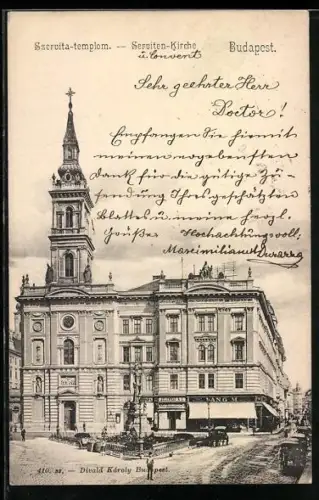 Szervita-templom. — Serviten-Kirche
u. Convent
Budapest.
Sehr geehrter Herr
Doctor!
Empfangen Sie hiermit
meinen ergebensten
Dank für die gütige Zu-
sendung Ihres geschätzten
Blattes u. meine herzl.
Grüße Hochachtungsvoll:
Maximilian
LANG M
410. sz. — Divald Károly Budapest.